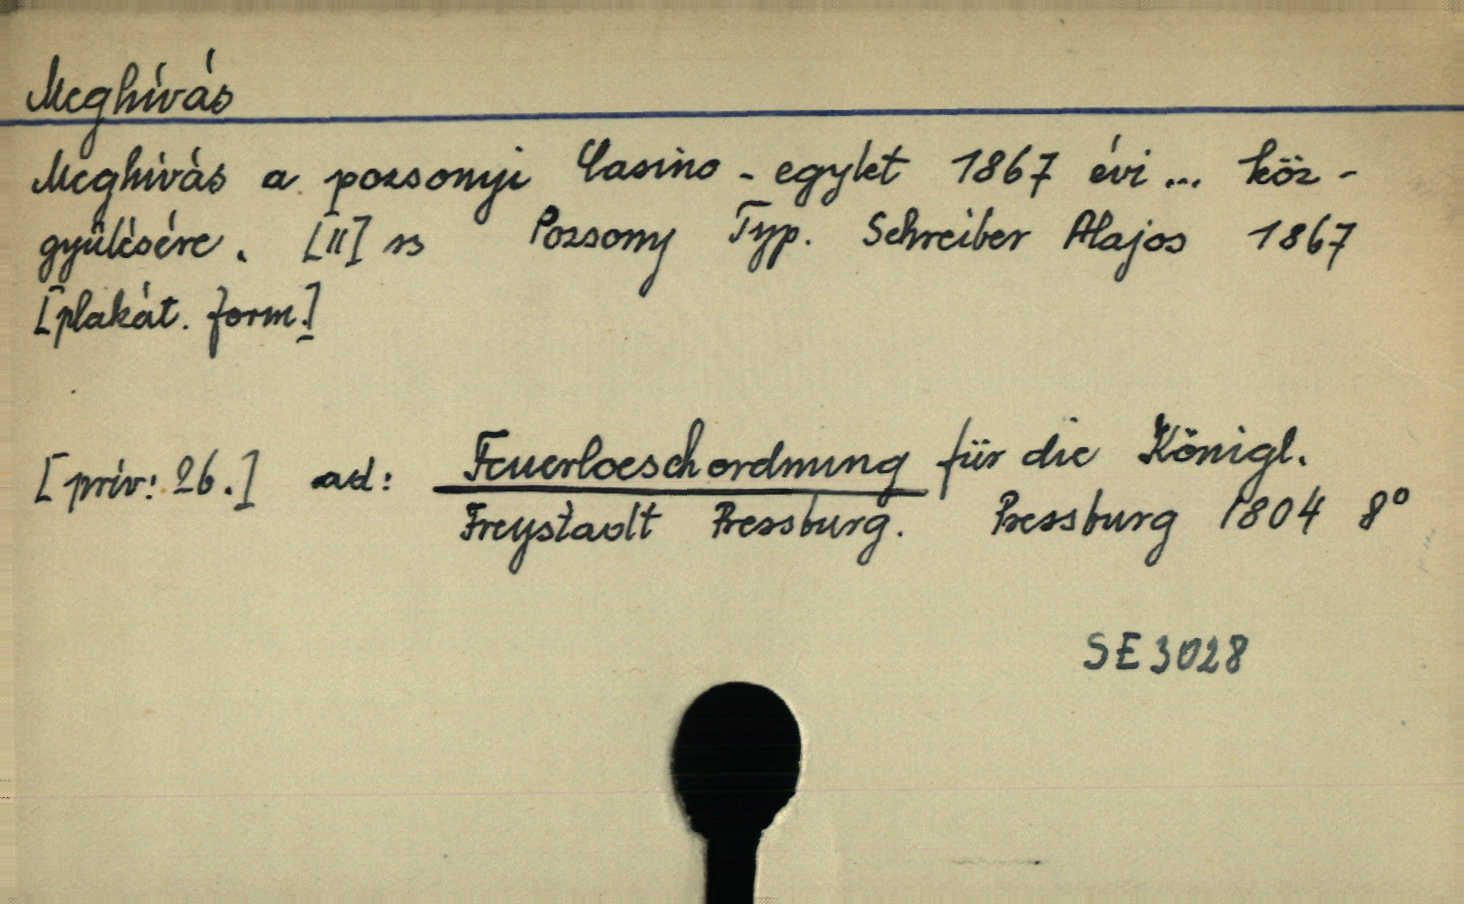 Meghívás
Meghívás a pozsonyi Casino - egylet 1867 évi ... köz -
gyűlésére. [II] Pozsony Typ. Schreiber Alajos 1867
[plakát. form.]
[priv: 26.] ad: Feuerloeschordnung für die Königl.
Freystadt Pressburg. Pressburg 1804 8°
SE 3028